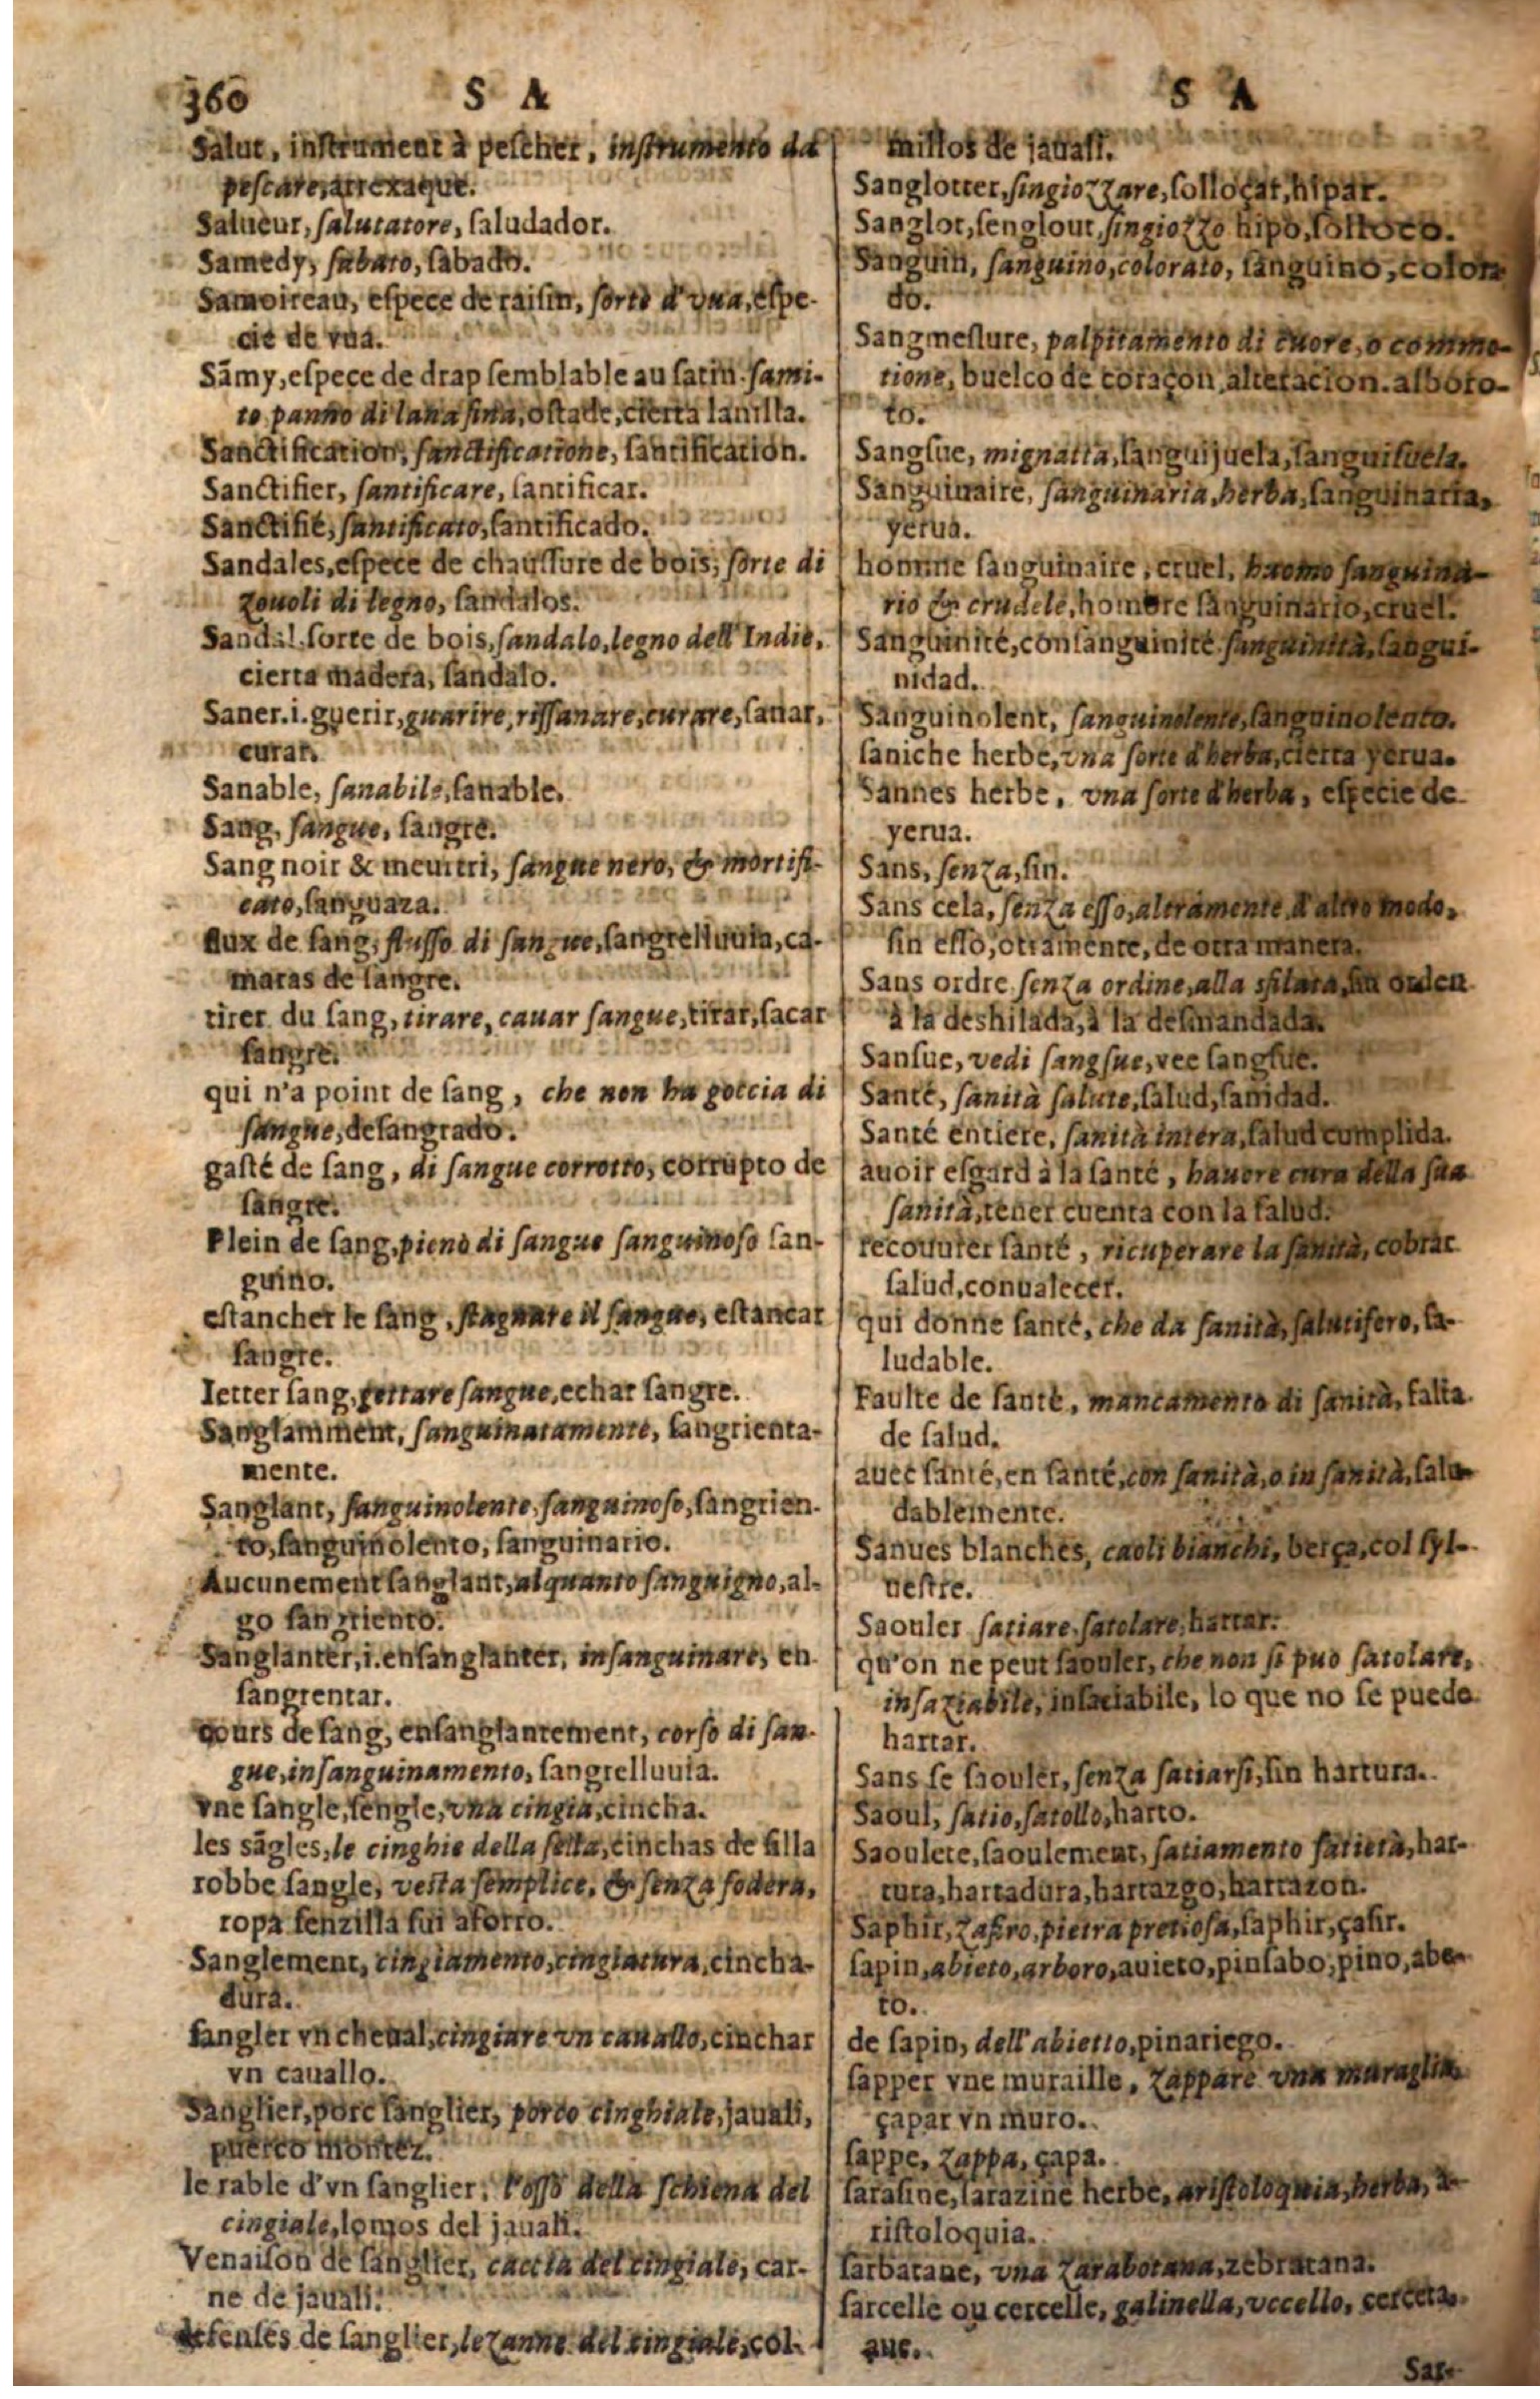 360 S A
Salut, inſtrument à peſcher, inſtrumento da
peſcare, arrexaque.
Salueur, ſalutatore, ſaludador.
Samedy, ſabato, ſabado.
Samoireau, eſpece de raiſin, ſorte d'vua, eſpe-
cie de vua.
Sãmy, eſpece de drap ſemblable au ſatin. ſami-
to panno di lana fina, oſtade, cierta lanilla.
Sanctification, ſanctificatione, ſantification.
Sanctifier, ſantificare, ſantificar.
Sanctifié, ſantificato, ſantificado.
Sandales, eſpece de chauſſure de bois, ſorte di
zouoli di legno, ſandalos.
Sandal. ſorte de bois, ſandalo, legno dell'Indie,
cierta madera, ſandalo.
Saner. i. guerir, guarire, riſſanare, curare, ſanar,
curar.
Sanable, ſanabile, ſanable.
Sang, ſangue, ſangre.
Sang noir & meurtri, ſangue nero, & mortifi-
cato, ſanguaza.
flux de ſang, fluſſo di ſangue, ſangrelluuia, ca-
maras de ſangre.
tirer du ſang, tirare, cauar ſangue, tirar, ſacar
ſangre.
qui n'a point de ſang, che non ha goccia di
ſangue, deſangrado.
gaſté de ſang, di ſangue corrotto, corrupto de
ſangre.
Plein de ſang, pieno di ſangue ſanguinoſo ſan-
guino.
eſtancher le ſang, ſtagnare il ſangue, eſtancar
ſangre.
Ietter ſang, gettare ſangue, echar ſangre.
Sanglamment, ſanguinatamente, ſangrienta-
mente.
Sanglant, ſanguinolente, ſanguinoſo, ſangrien-
to, ſanguinolento, ſanguinario.
Aucunement ſanglant, alquanto ſanguigno, al-
go ſangriento.
Sanglanter, i. enſanglanter, inſanguinare, en
ſangrentar.
cours de ſang, enſanglantement, corſo di ſan-
gue, inſanguinamento, ſangrelluuia.
vne ſangle, ſengle, vna cingia, cincha.
les sãgles, le cinghie della ſella, cinchas de ſilla
robbe ſangle, veſta ſemplice, & ſenza fodera,
ropa ſenzilla ſin aforro.
Sanglement, cingiamento, cingiatura, cincha-
dura.
ſangler vn cheual, cingiare vn cauallo, cinchar
vn cauallo.
Sanglier, porc ſanglier, porco cinghiale, jauali,
puerco montez.
le rable d'vn ſanglier, l'oſſo della ſchiena del
cingiale, lomos del jauali.
Venaiſon de ſanglier, caccia del cingiale, car-
ne de jauali.
defenſes de ſanglier, le zanne del cingiale, col-
S A
millos de jauali.
Sanglotter, ſingiozzare, ſolloçar, hipar.
Sanglot, ſenglout, ſingiozzo hipo, ſolloço.
Sanguin, ſanguino, colorato, ſanguino, colora
do.
Sangmeſlure, palpitamento di cuore, o commo-
tione, buelco de coraçon, alteracion. alboro-
to.
Sangſue, mignatta, ſanguijuela, ſanguiſuela.
Sanguinaire, ſanguinaria, herba, ſanguinaria,
yerua.
homme ſanguinaire, cruel, huomo ſanguina-
rio & crudele, hombre ſanguinario, cruel.
Sanguinité, conſanguinité ſanguinità, ſangui-
nidad.
Sanguinolent, ſanguinolente, ſanguinolento.
ſaniche herbe, vna ſorte d'herba, cierta yerua.
Sannes herbe, vna ſorte d'herba, eſpecie de
yerua.
Sans, ſenza, ſin.
Sans cela, ſenza eſſo, altramente, d'altro modo,
ſin eſſo, otramente, de otra manera.
Sans ordre ſenza ordine, alla sfilata, ſin orden
à la deshilada, à la deſmandada.
Sanſue, vedi ſangſue, vee ſangſue.
Santé, ſanità ſalute, ſalud, ſanidad.
Santé entiere, ſanità intera, ſalud cumplida.
auoir eſgard à la ſanté, hauere cura della ſua
ſanità, tener cuenta con la ſalud.
recouurer ſanté, ricuperare la ſanità, cobrar
ſalud, conualecer.
qui donne ſanté, che da ſanità, ſalutifero, ſa-
ludable.
Faulte de ſanté, mancamento di ſanità, falta
de ſalud.
auec ſanté, en ſanté, con ſanità, o in ſanità, ſalu-
dablemente.
Sanues blanches, caoli bianchi, berça, col ſyl-
ueſtre.
Saouler ſatiare, ſatolare, hartar.
qu'on ne peut ſaouler, che non ſi puo ſatolare,
inſaziabile, inſaciabile, lo que no ſe puede
hartar.
Sans ſe ſaouler, ſenza ſatiarſi, ſin hartura.
Saoul, ſatio, ſatollo, harto.
Saouleté, ſaoulement, ſatiamento ſatietà, har-
tura, hartadura, hartazgo, hartazon.
Saphir, zafiro, pietra pretioſa, ſaphir, çafir.
ſapin, abieto, arboro, auieto, pinſabo, pino, abe-
to.
de ſapin, dell'abietto, pinariego.
ſapper vne muraille, zappare vna muraglia,
çapar vn muro.
ſappe, zappa, çapa.
ſaraſine, ſarazine herbe, ariſtoloquia, herba, a-
riſtoloquia.
ſarbatane, vna zarabotana, zebratana.
ſarcelle ou cercelle, galinella, vccello, cerceta,
aue.
Sar-